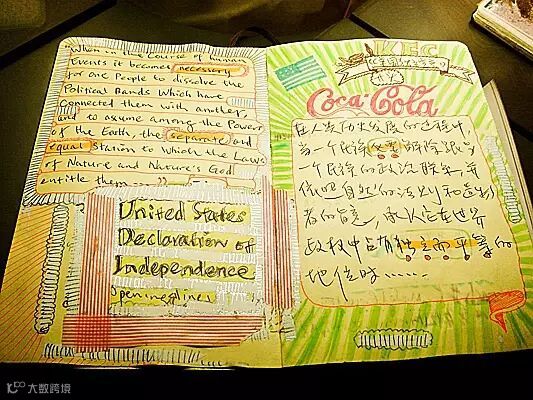 "When in the Course of human
Events it becomes necessary
for one People to dissolve the
Political Bands Which have
Connected them with another,
and to assume among the Powers
of the Earth, the separate and
equal Station to Which the Laws
of Nature and Nature's God
entitle them
United States
Declaration of
Independence
opening lines
KFC
Coca-Cola
在人类历史发展的过程中,
当一个民族必要解除跟另
一个民族的政治联系,并
依照自然的法则和造物
者的旨意,承认它在世界
政权中占有独立而平等的
地位时……
大数跨境